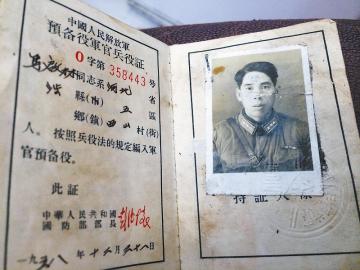 中國人民解放軍
預备役軍官兵役証
0字第358443號
同志系湖北省
縣(市)五區
鄉(鎮)山村(街)
人。按照兵役法的規定編入軍
官預备役。
此証
中華人民共和國
國防部部長 彭德怀
一九五八年十二月
持証人像